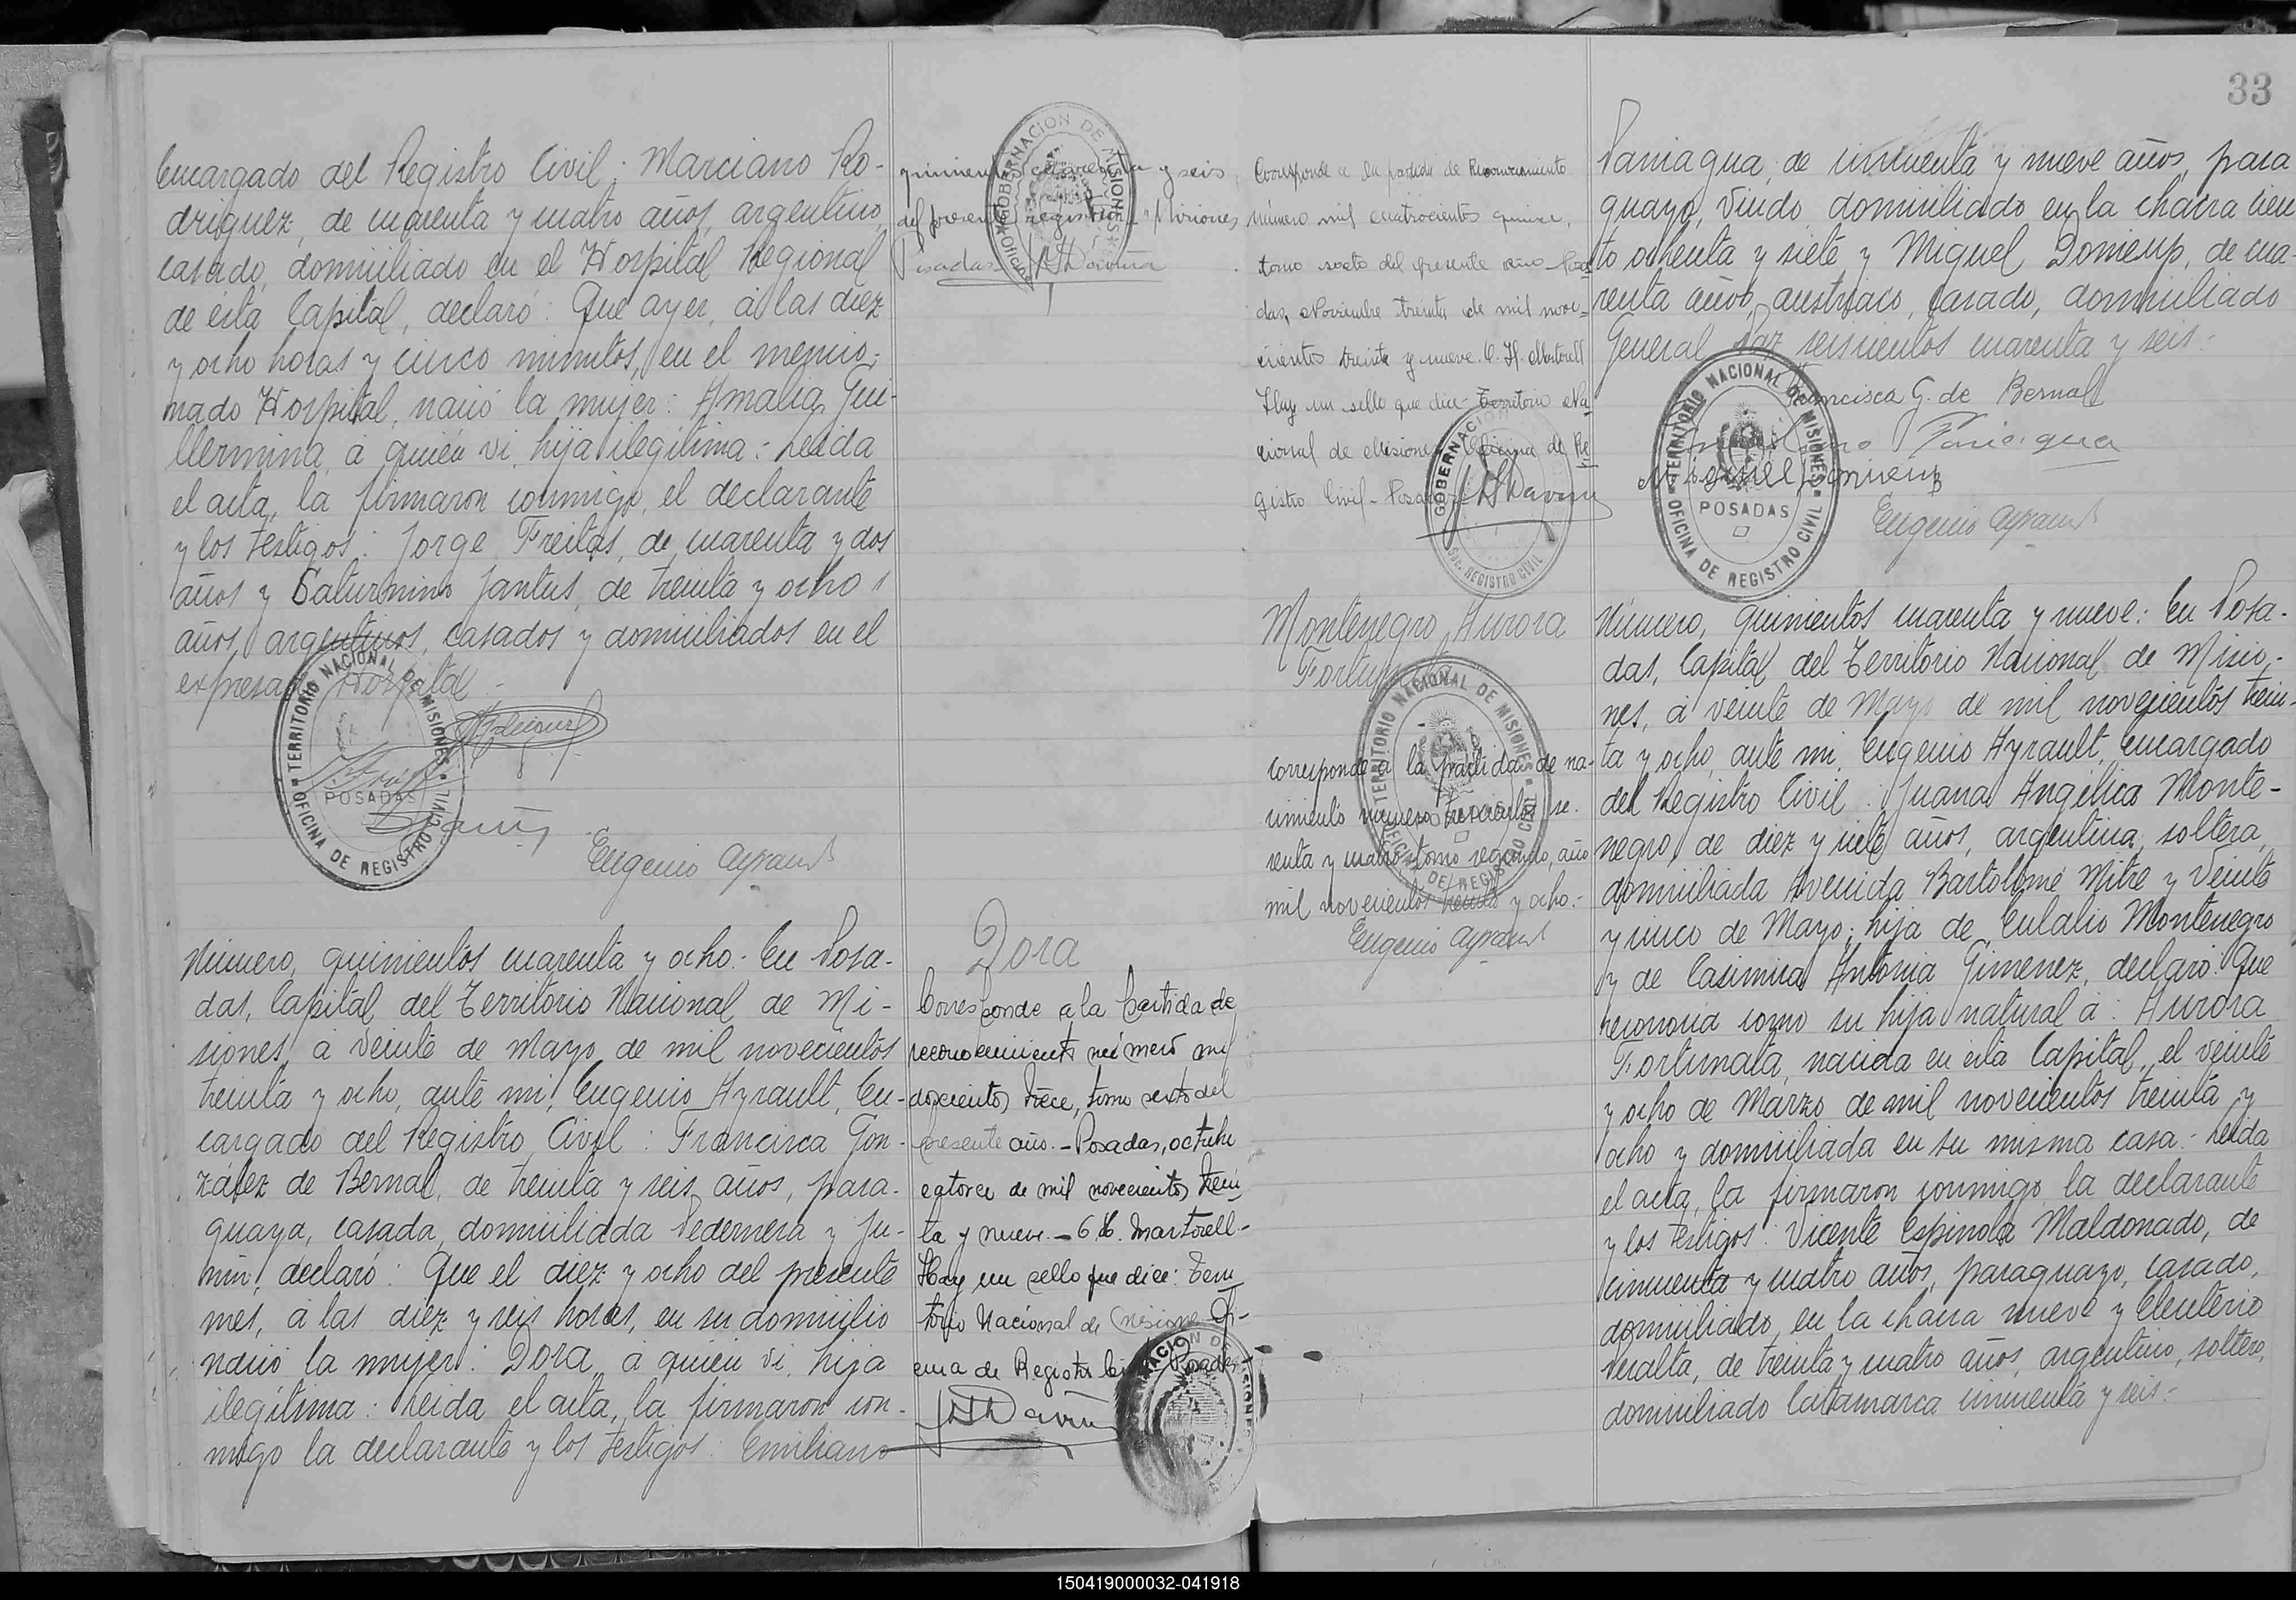 Encargado del Registro Civil: Marciano Ro-
driguez, de cuarenta y cuatro años, argentino,
casado, domiciliado en el Hospital Regional
de ésta Capital, declaró: Que ayer, á las diez
y ocho horas y cinco minutos, en el mencio-
nado Hospital, nació la mujer: Amalia Gui-
llermina, á quién vi, hija ilegítima: Leida
el acta, la firmaron conmigo, el declarante
y los testigos: Jorge Freitas, de cuarenta y dos
años y Saturnino Jantus, de treinta y ocho
años, argentinos, casados y domiciliados en el
expresado Hospital.-
TERRITORIO NACIONAL DE MISIONES
POSADAS
OFICINA DE REGISTRO CIVIL
Eugenio Ayrault
quinientos cuarenta y seis,
del presente registro - Misiones,
Posadas
GOBERNACION DE MISIONES
Número, quinientos cuarenta y ocho: En Posa-
das, Capital del Territorio Nacional de Mi-
siones, á veinte de Mayo de mil novecientos
treinta y ocho, ante mi, Eugenio Ayrault, En-
cargado del Registro Civil: Francisca Gon-
zález de Bernal, de treinta y seis años, para-
guaya, casada, domiciliada Pedernera y Ju-
nin, declaró: Que el diez y ocho del presente
mes, á las diez y seis horas, en su domicilio
nació la mujer: Dora, á quién vi, hija
ilegítima: Leida el acta, la firmaron con-
migo la declarante y los testigos: Emiliano
Dora
Corresponde a la Partida de
reconocimiento número mil
doscientos trece, tomo sexto del
presente año.- Posadas, octubre
catorce de mil novecientos trein
ta y nueve.- C. H. Martorell-
Hay un sello que dice: Terri
torio Nacional de Misiones Ofi-
cina de Registro Civil Posadas
33
Corresponde a la partida de Reconocimiento
número mil cuatrocientos quince,
tomo sexto del presente año - Posa
das, Noviembre treinta de mil nove-
cientos treinta y nueve. C. H. Martorell
Hay un sello que dice: Territorio Na
cional de Misiones Oficina de Re
gistro Civil - Posadas
GOBERNACION
REGISTRO CIVIL
Paniagua, de cincuenta y nueve años, para
guayo, viudo, domiciliado en la chacra cien
to ochenta y siete y Miguel Domenp, de cua-
renta años, austriaco, casado, domiciliado
General Paz seiscientos cuarenta y seis:
Francisca G. de Bernal
Paniagua
TERRITORIO NACIONAL DE MISIONES
POSADAS
OFICINA DE REGISTRO CIVIL
Eugenio Ayrault
Montenegro, Aurora
Fortunata
TERRITORIO NACIONAL DE MISIONES
OFICINA DE REGISTRO CIVIL
Corresponde á la partida de na-
cimiento número trescientos se-
senta y cuatro, tomo segundo, año
mil novecientos treinta y ocho.-
Eugenio Ayrault
Número, quinientos cuarenta y nueve: En Posa-
das, Capital del Territorio Nacional de Misio-
nes, á veinte de Mayo de mil novecientos trein-
ta y ocho, ante mi, Eugenio Ayrault, Encargado
del Registro Civil: Juana Angélica Monte-
negro, de diez y siete años, argentina, soltera,
domiciliada Avenida Bartolomé Mitre y Veinte
y cinco de Mayo, hija de Eulalio Montenegro
y de Casimira Antonia Gimenez, declaró: Que
reconocia como su hija natural á: Aurora
Fortunata, nacida en ésta Capital, el veinte
y ocho de Marzo de mil novecientos treinta y
ocho y domiciliada en su misma casa.- Leida
el acta, la firmaron conmigo la declarante
y los testigos: Vicente Espinola Maldonado, de
cincuenta y cuatro años, paraguayo, casado,
domiciliado en la chacra nueve y Eleuterio
Peralta, de treinta y cuatro años, argentino, soltero,
domiciliado Catamarca cincuenta y seis.-
150419000032-041918